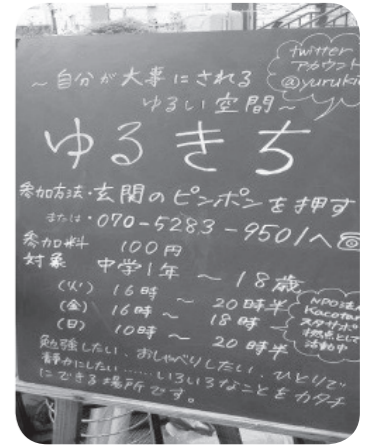 twitter
アカウント
@yuruki
～自分が大事にされる
ゆるい空間～
ゆるきち
参加方法・玄関のピンポンを押す
または・070-5283-9501へ☎
参加料 100円
対象 中学1年 ～ 18歳
(火) 16時 ～ 20時半
(金) 16時 ～ 18時
(日) 10時 ～ 20時半
NPO法人
Kacotam
スタサポ
拠点として
活動中
勉強したい、おしゃべりしたい、ひとりで
静かにしたい……いろいろなことをカタチ
にできる場所です。